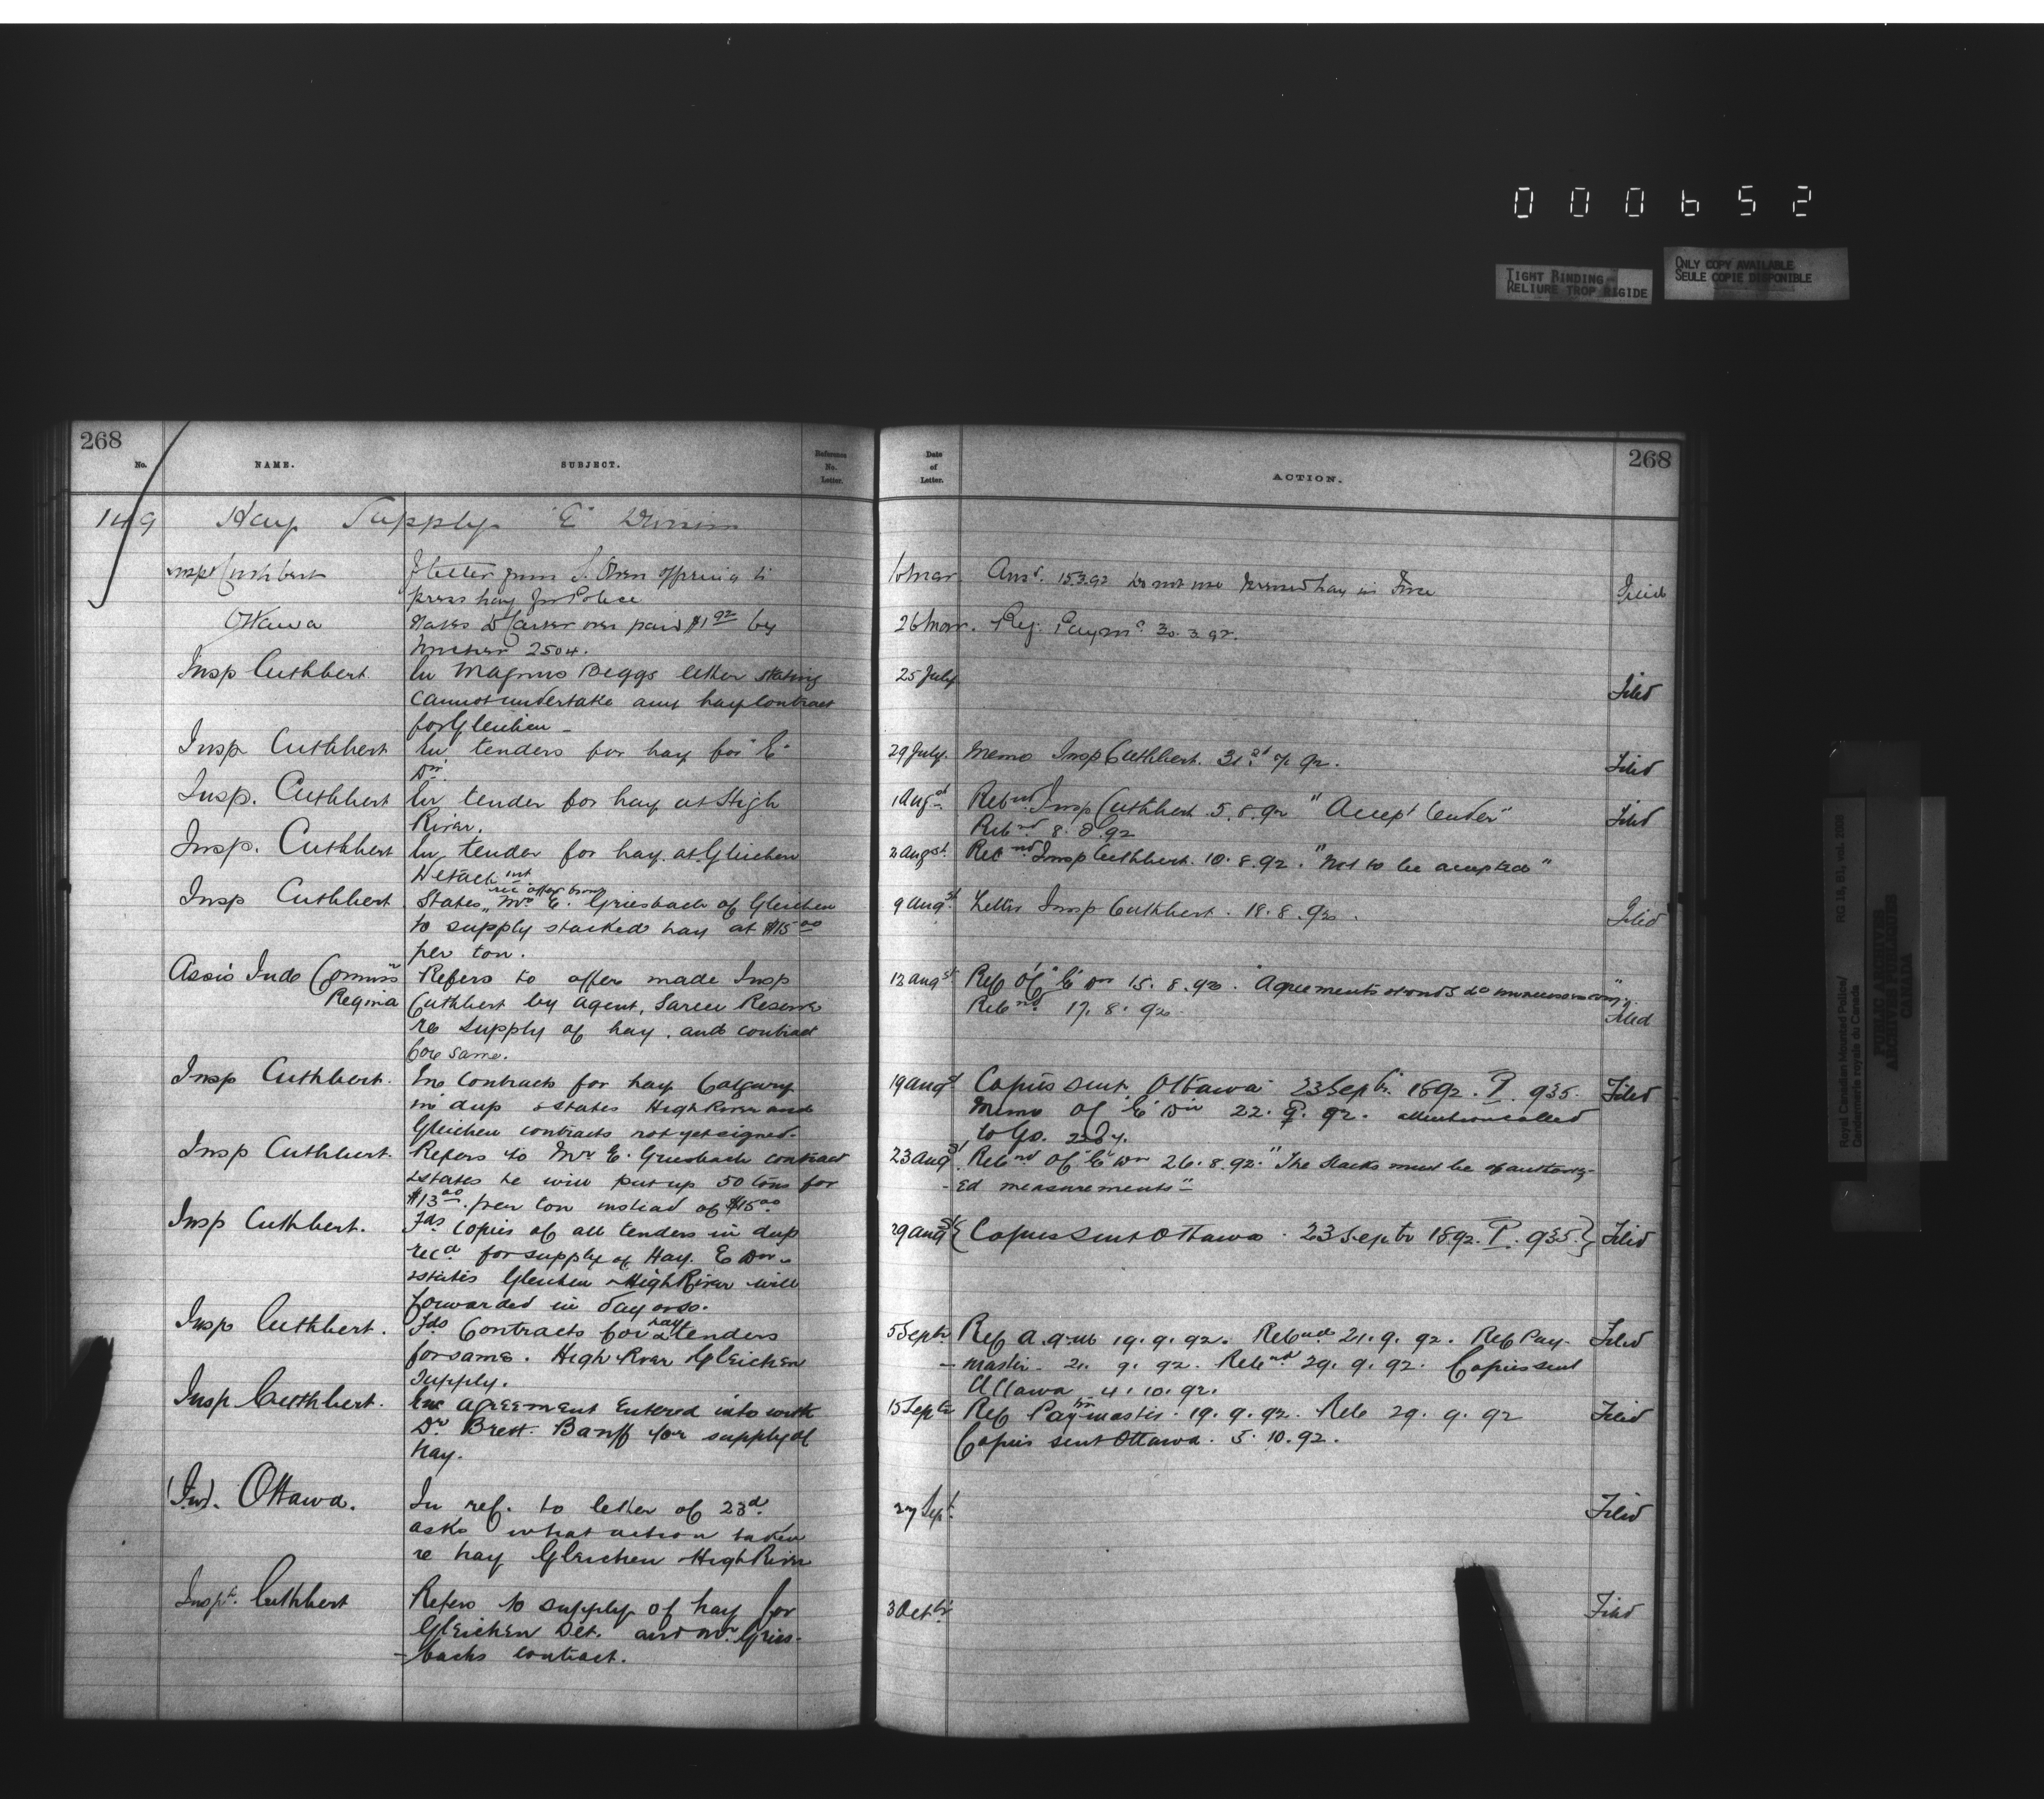 000652
TIGHT BINDING
RELIURE TROP RIGIDE
ONLY COPY AVAILABLE
SEULE COPIE DISPONIBLE
268
No.
NAME.
SUBJECT.
Reference No. Letter.
Date of Letter.
ACTION.
268
149 Hay Supply "E" Division
Insp Cuthbert letter from S. offering to 10 Mar Ansd. 15.3.92 Do not use pressed hay in Force Filed
press hay for Police
Ottawa States over paid $1 92 by 26 Mar. Ref. Paymr 30.3.92.
voucher 2504.
Insp Cuthbert In Magnus Beggs letter stating 25 July Filed
cannot undertake any hay contract
for Gleichen -
Insp Cuthbert In tenders for hay for "E" 29 July. Memo Insp Cuthbert. 31st 7/92. Filed
Dn.
Insp. Cuthbert In tender for hay at High 1 Augst Retnd Insp Cuthbert 5.8.92 "Accept tender" Filed
River. Retnd 8.8.92
Insp. Cuthbert In tender for hay at Gleichen 2 Augst. Retnd Insp Cuthbert. 10.8.92. "Not to be accepted"
Detachmt
Insp Cuthbert States rec offer from Mr E. Griesbach of Gleichen 9 Augst. Letter Insp Cuthbert. 18.8.92. Filed
to supply stacked hay at $15 00
per ton.
Assis Inds Commissr Refers to offer made Insp 13 Augst Ref Of "E" Dn 15.8.92. "Agreements
Regina Cuthbert by agent, Sarcee Reserve Retnd 17.8.92. Filed
re supply of hay. and contract
for same.
Insp Cuthbert. Inc contracts for hay Calgary 19 Augst Copies sent Ottawa 23 Septbr 1892. P. 935. Filed
in dup & states High River and Memo Of "E" Div 22.9.92. attention called
Gleichen contracts not yet signed. to Go.
Insp Cuthbert. Refers to Mr E. Griesbach contract 23 Augst Retnd Of "E" Dn 26.8.92. "The stacks must be of authoriz-
& states he will put up 50 tons for -ed measurements"
$13 00 per ton instead of $15 00
Insp Cuthbert. Fds copies of all tenders in dup 29 Augst {Copies sent Ottawa. 23 Septbr 1892. P. 935.} Filed
recd for supply of Hay. E Dn.
& states Gleichen & High River will
forwarded in day or so.
Insp Cuthbert. Fds Contracts for hay & tenders 5 Septbr Ref A.Q.M 19.9.92. Retnd 21.9.92. Ref Pay- Filed
for same. High River Gleichen -master 21.9.92. Retnd 29.9.92. Copies sent
supply. Ottawa 4.10.92.
Insp Cuthbert. Enc agreement entered into with 15 Septbr Ref Paymaster. 19.9.92. Ret 29.9.92 Filed
Dr Brett. Banff for supply of Copies sent Ottawa. 5.10.92.
hay.
Ottawa. In ref. to letter of 23d. 27 Sept. Filed
asks what action taken
re hay Gleichen & High River
Inspr. Cuthbert Refers to supply of hay for 3 Octbr Filed
Gleichen Det. and Mr. Gries-
-bachs contract.
Royal Canadian Mounted Police/
Gendarmerie royale du Canada
RG 18, B1, vol. 2006
PUBLIC ARCHIVES
ARCHIVES PUBLIQUES
CANADA